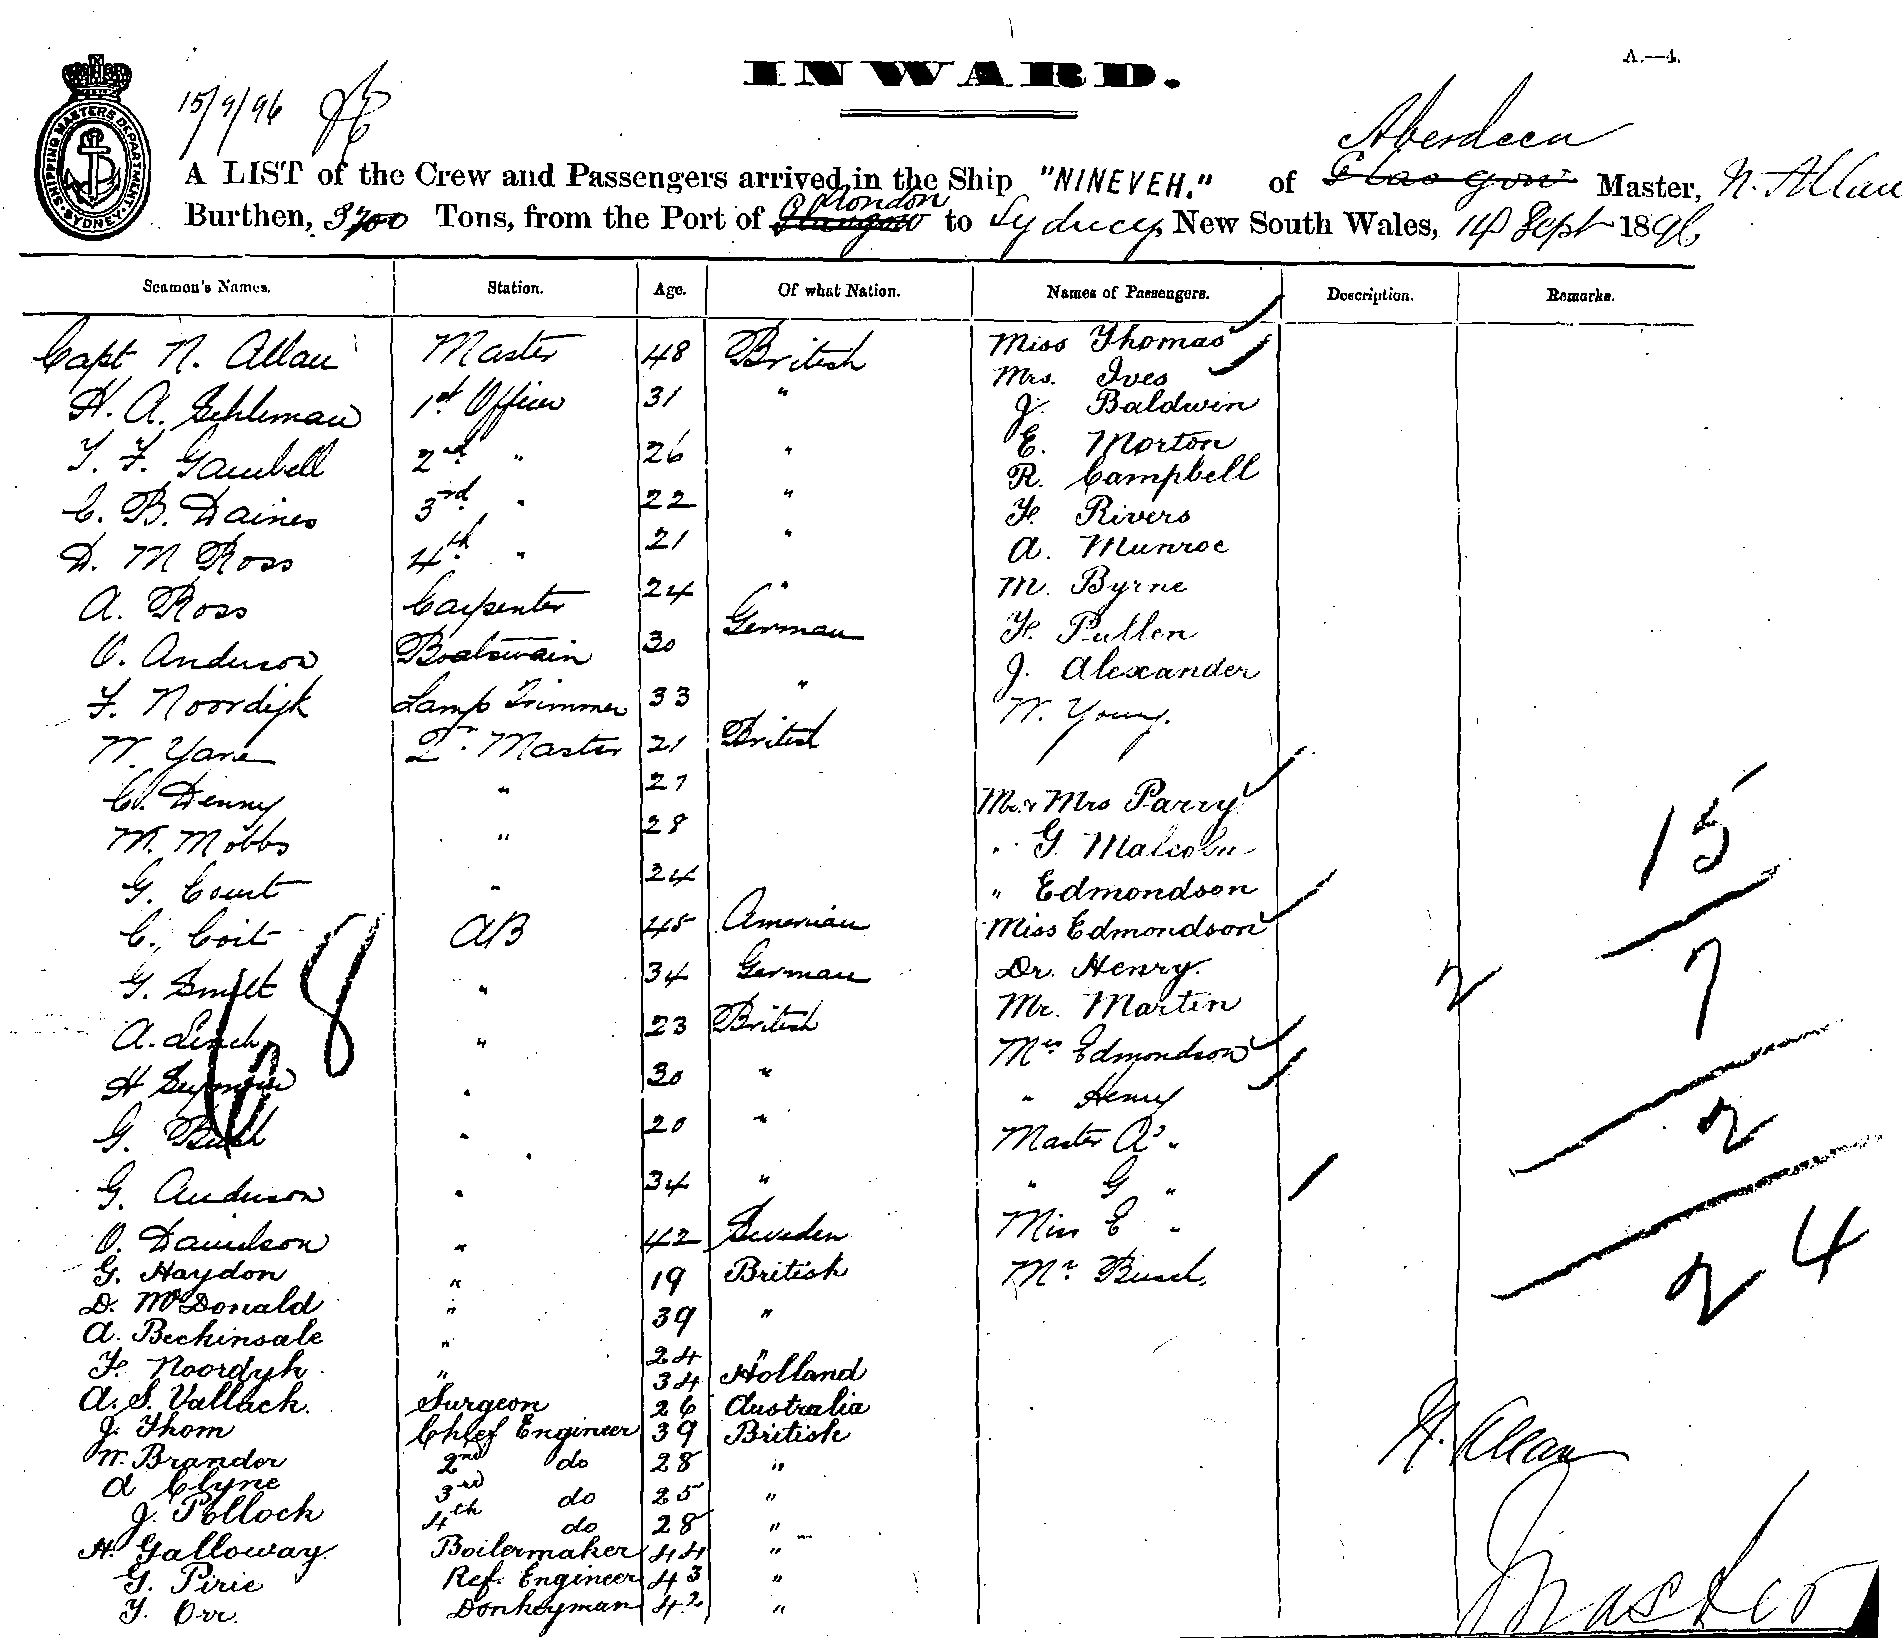 A.—4.
INWARD.
SHIPPING MASTERS DEPARTMENT
SYDNEY
15/9/96
Aberdeen
A LIST of the Crew and Passengers arrived in the Ship "NINEVEH." of Glasgow Master, N. Allan
London
Burthen, 3700 Tons, from the Port of Glasgow to Sydney, New South Wales, 14 Sept 1896
Seamen's Names. Station. Age. Of what Nation. Names of Passengers. Description. Remarks.
Capt N. Allan Master 48 British Miss Thomas
H. A. Schleman 1st Officer 31 " Mrs. Ives
J. Baldwin
T. F. Gambell 2nd " 26 " E. Morton
R. Campbell
C. B. Daines 3rd " 22 " F. Rivers
D. M Ross 4th " 21 " A. Munroe
A. Ross Carpenter 24 " M. Byrne
O. Anderson Boatswain 30 German F. Pullen
J. Alexander
F. Noordijk Lamp Trimmer 33 " W. Young.
W. Yare Qr Master 21 British
C. Denny " 27 Mr & Mrs Parry
W. Mobbs " 28 " G. Malcolm
G. Court " 24 " Edmondson
C. Coit AB 45 American Miss Edmondson
G. Smilt " 34 German Dr. Henry.
A. Leach " 23 British Mr. Martin
H Seymour " 30 " Mrs Edmondson
" Henry
G. Buhl " 20 " Master A "
G. Anderson " 34 " " G "
O. Davidson " 42 Sweden Miss E "
G. Haydon " 19 British Mr Busch.
D. McDonald " 39 "
A. Beckinsale " 24 "
F. Noordyk " 34 Holland
A. S. Vallack. Surgeon 26 Australia
J. Thom Chief Engineer 39 British
W. Brander 2nd do 28 "
A Clyne 3rd do 25 "
J. Pollock 4th do 28 "
H. Galloway. Boilermaker 44 "
G. Pirie Ref. Engineer 43 "
J. Orr. Donkeyman 42 "
68
15
2 7
2
24
N. Allan
Master